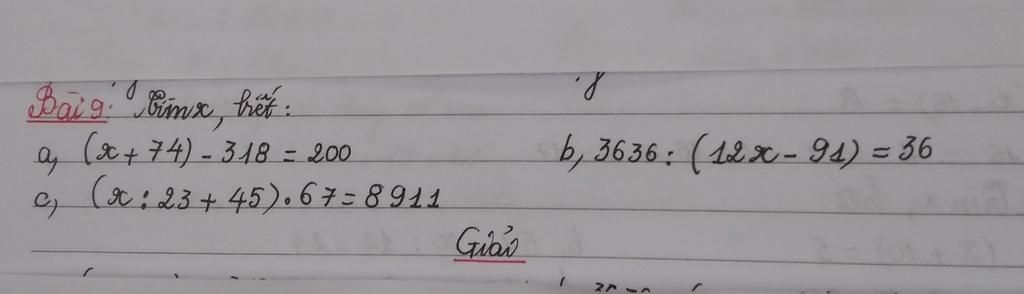 Bài 9: Tìm x, biết:
a, (x + 74) - 318 = 200 b, 3636 : (12x - 91) = 36
c, (x : 23 + 45) . 67 = 8911
Giải